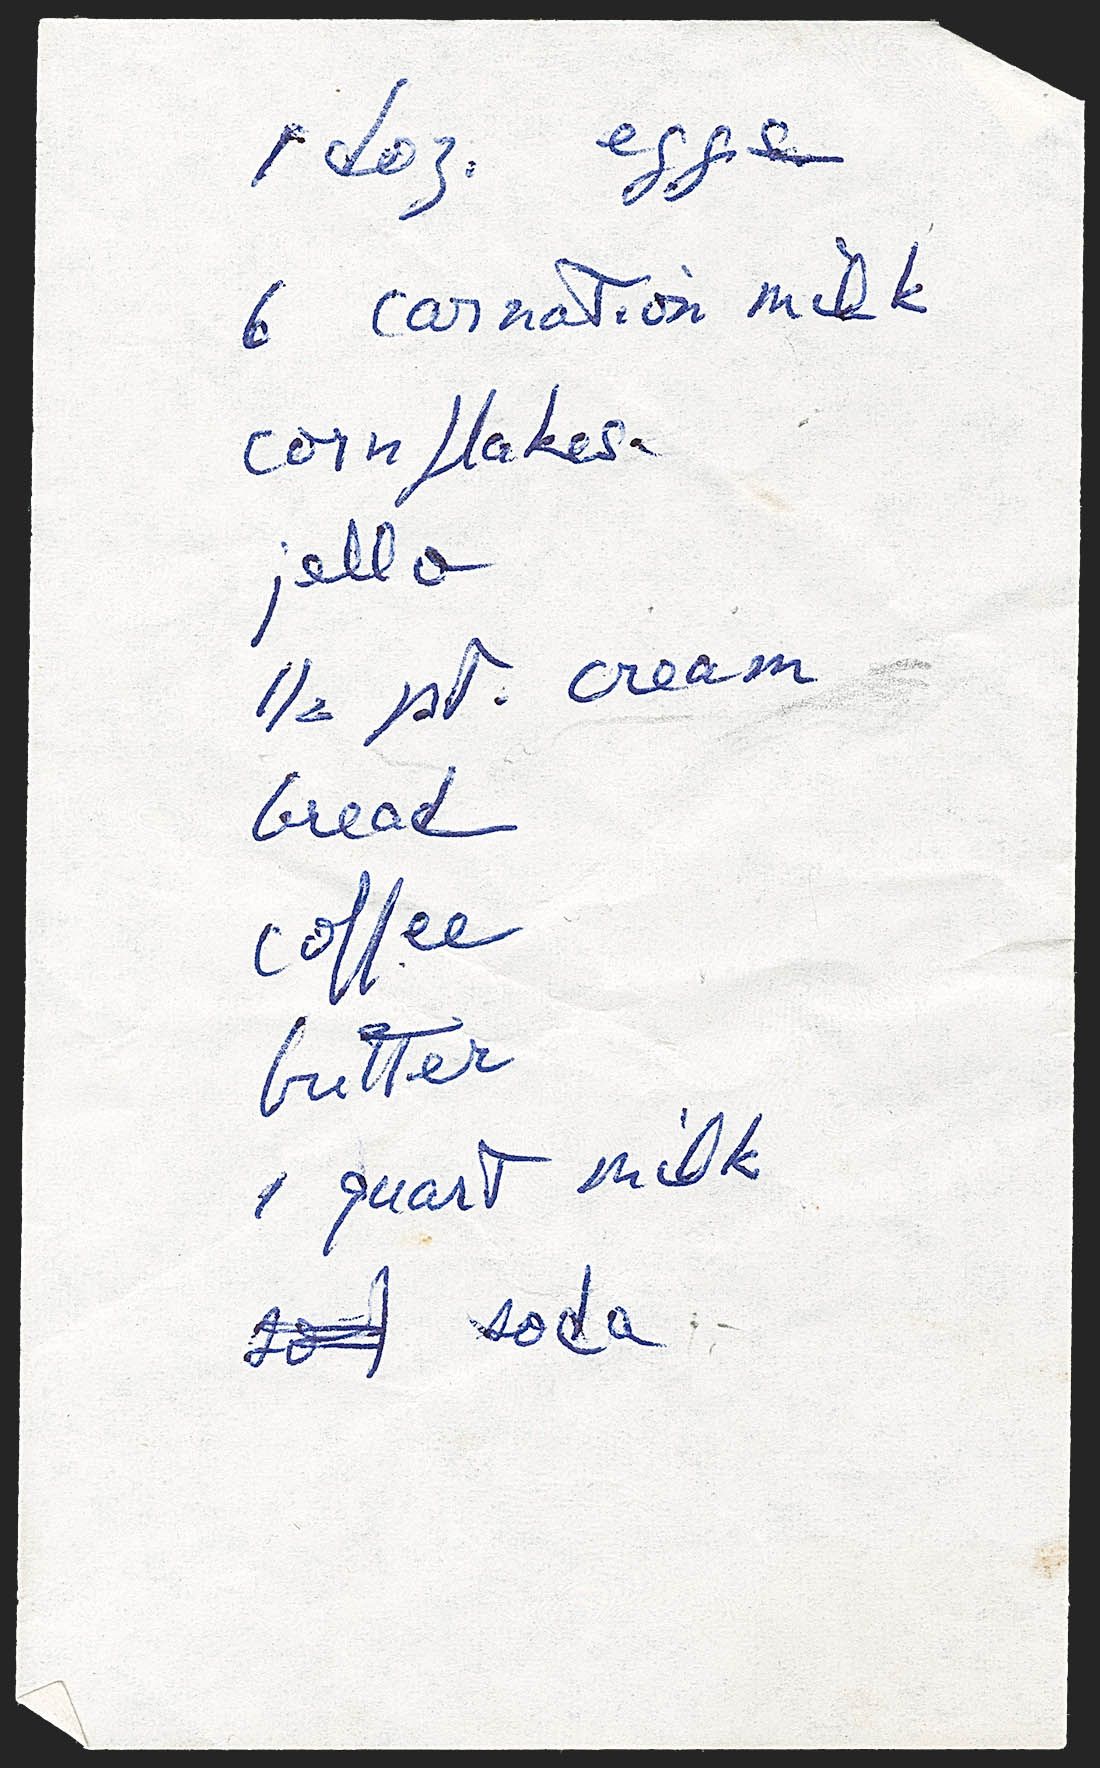 1 doz. eggs
6 carnation milk
cornflakes
jello
1/2 pt. cream
bread
coffee
butter
1 quart milk
soda